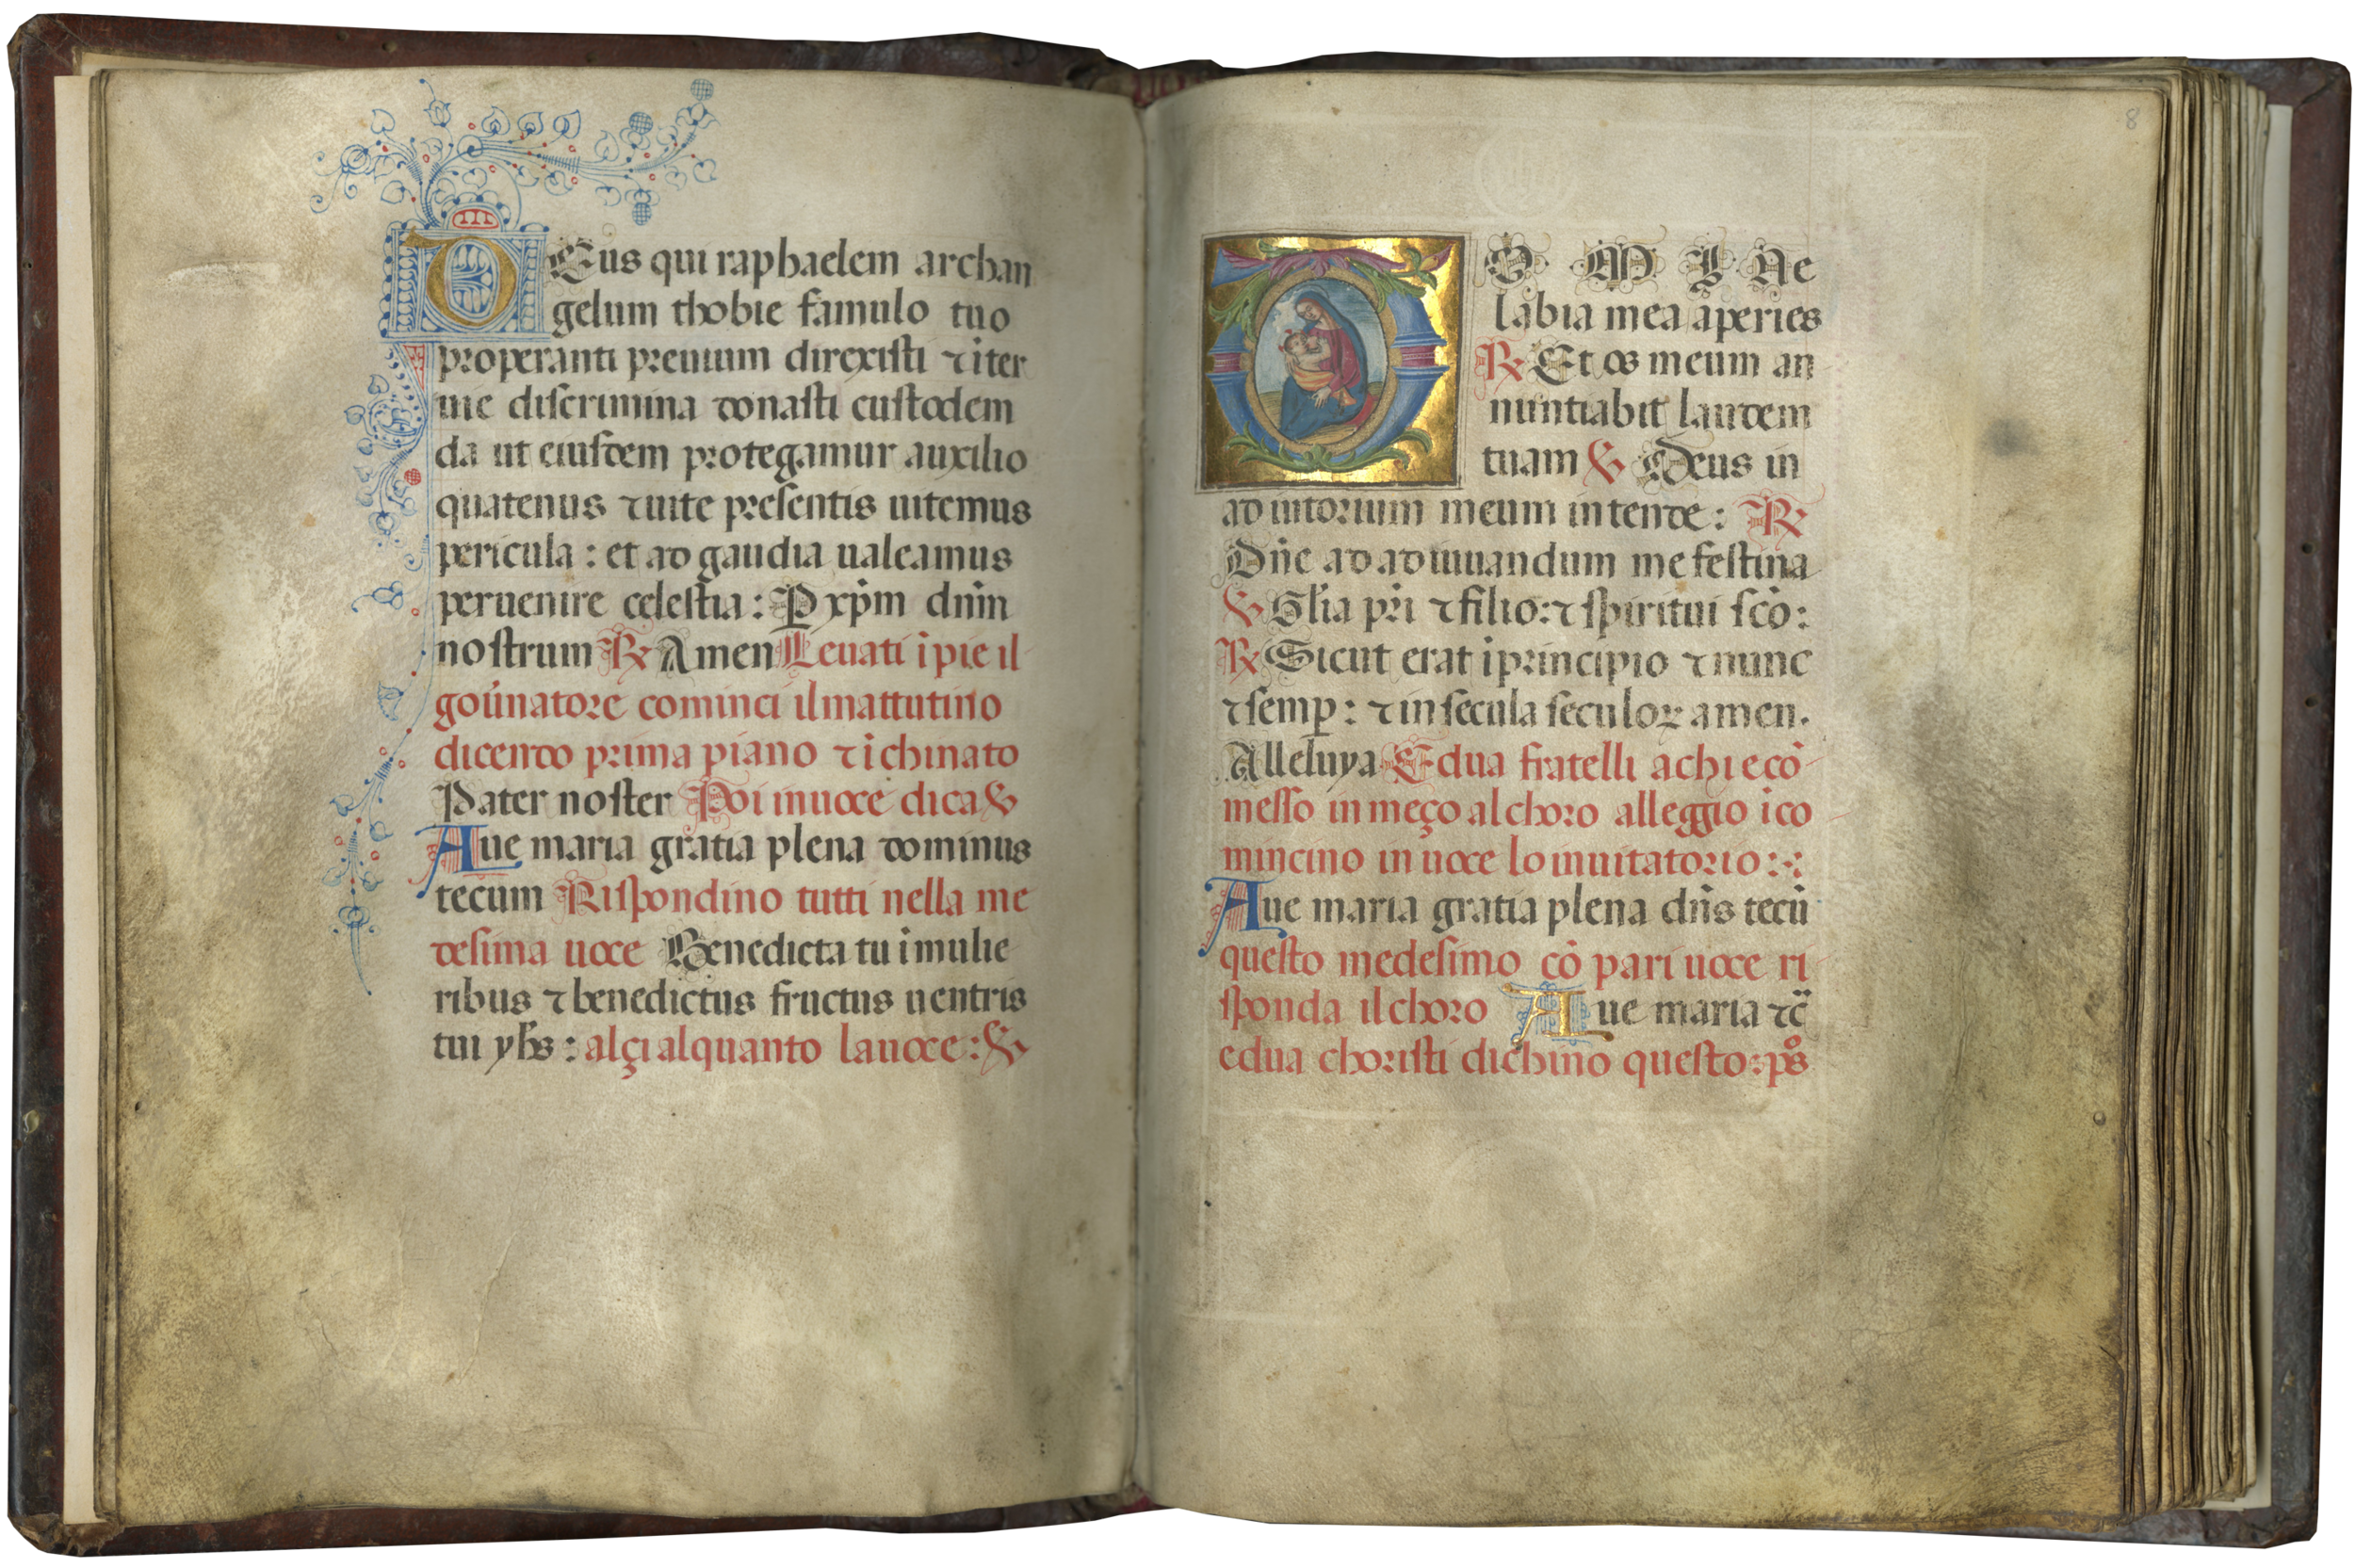 DEus qui raphaelem archan
gelum thobie famulo tuo
properanti preuium direxisti ⁊ iter
uie discrimina donasti custodem
da ut eiusdem protegamur auxilio
quatenus ⁊ uite presentis uitemus
pericula : et ad gaudia ualeamus
peruenire celestia : P xp̄m dn̄m
nostrum ℟ Amen Leuati ī pie il
gou̇natore cominci il mattutino
dicendo prima piano ⁊ ī chinato
Pater noster Poi in uoce dica ℣
Aue maria gratia plena dominus
tecum Rispondino tutti nella me
desima uoce Benedicta tu ī mulie
ribus ⁊ benedictus fructus uentris
tui yhs̄ : alçi alquanto la uoce : ℣
8
DO M I Ne
labia mea aperies
℟ Et os meum an
nuntiabit laudem
tuam ℣ Deus in
ad iutorium meum in tende : ℟
Dn̄e ad adiuuandum me festina
℣ Gl̄ia pr̄i ⁊ filio : ⁊ spiritui scō :
℟ Sicut erat ī principio ⁊ nunc
⁊ semp̱ : ⁊ in secula seculoꝝ amen .
Alleluya E dua fratelli a chi e cō
messo in meço al choro alleggio ī co
mincino in uoce lo inuitatorio :
Aue maria gratia plena dn̄s tecū
questo medesimo cō pari uoce ri
sponda il choro Aue maria ⁊c̄
e dua choristi dichino questo : ps̊